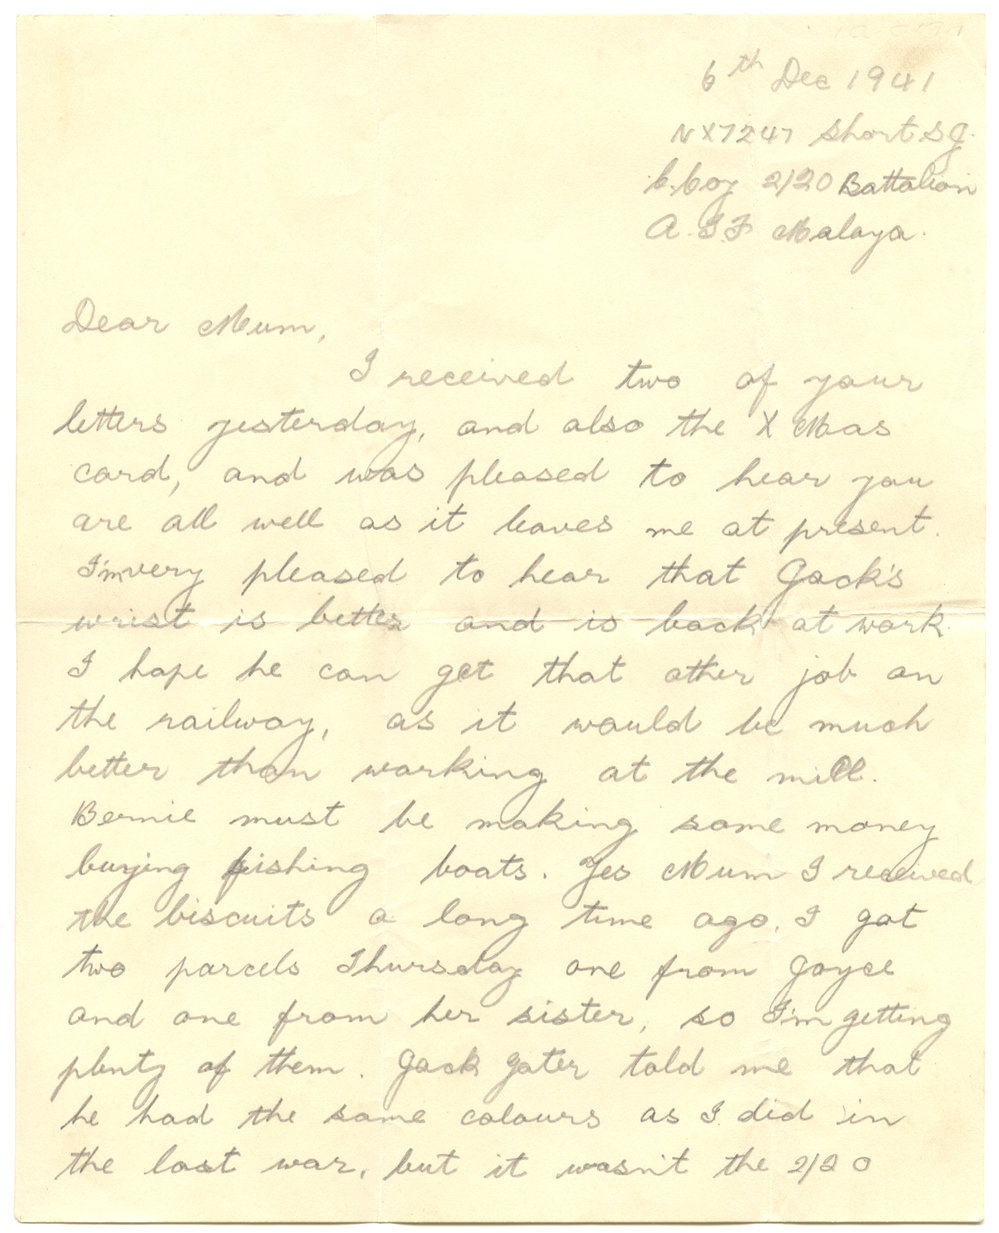 6th Dec 1941
NX7247 Short S J.
C. Coy 2/20 Battalion
A.I.F Malaya.
Dear Mum,
I received two of your
letters yesterday, and also the X Mas
card, and was pleased to hear you
are all well as it leaves me at present.
I'm very pleased to hear that Jack's
wrist is better and is back at work.
I hope he can get that other job on
the railway, as it would be much
better than working at the mill.
Bernie must be making some money
buying fishing boats. Yes Mum I received
the biscuits a long time ago. I got
two parcels Thursday one from Joyce
and one from her sister, so I'm getting
plenty of them. Jack told me that
he had the same colours as I did in
the last war, but it wasn't the 2/20